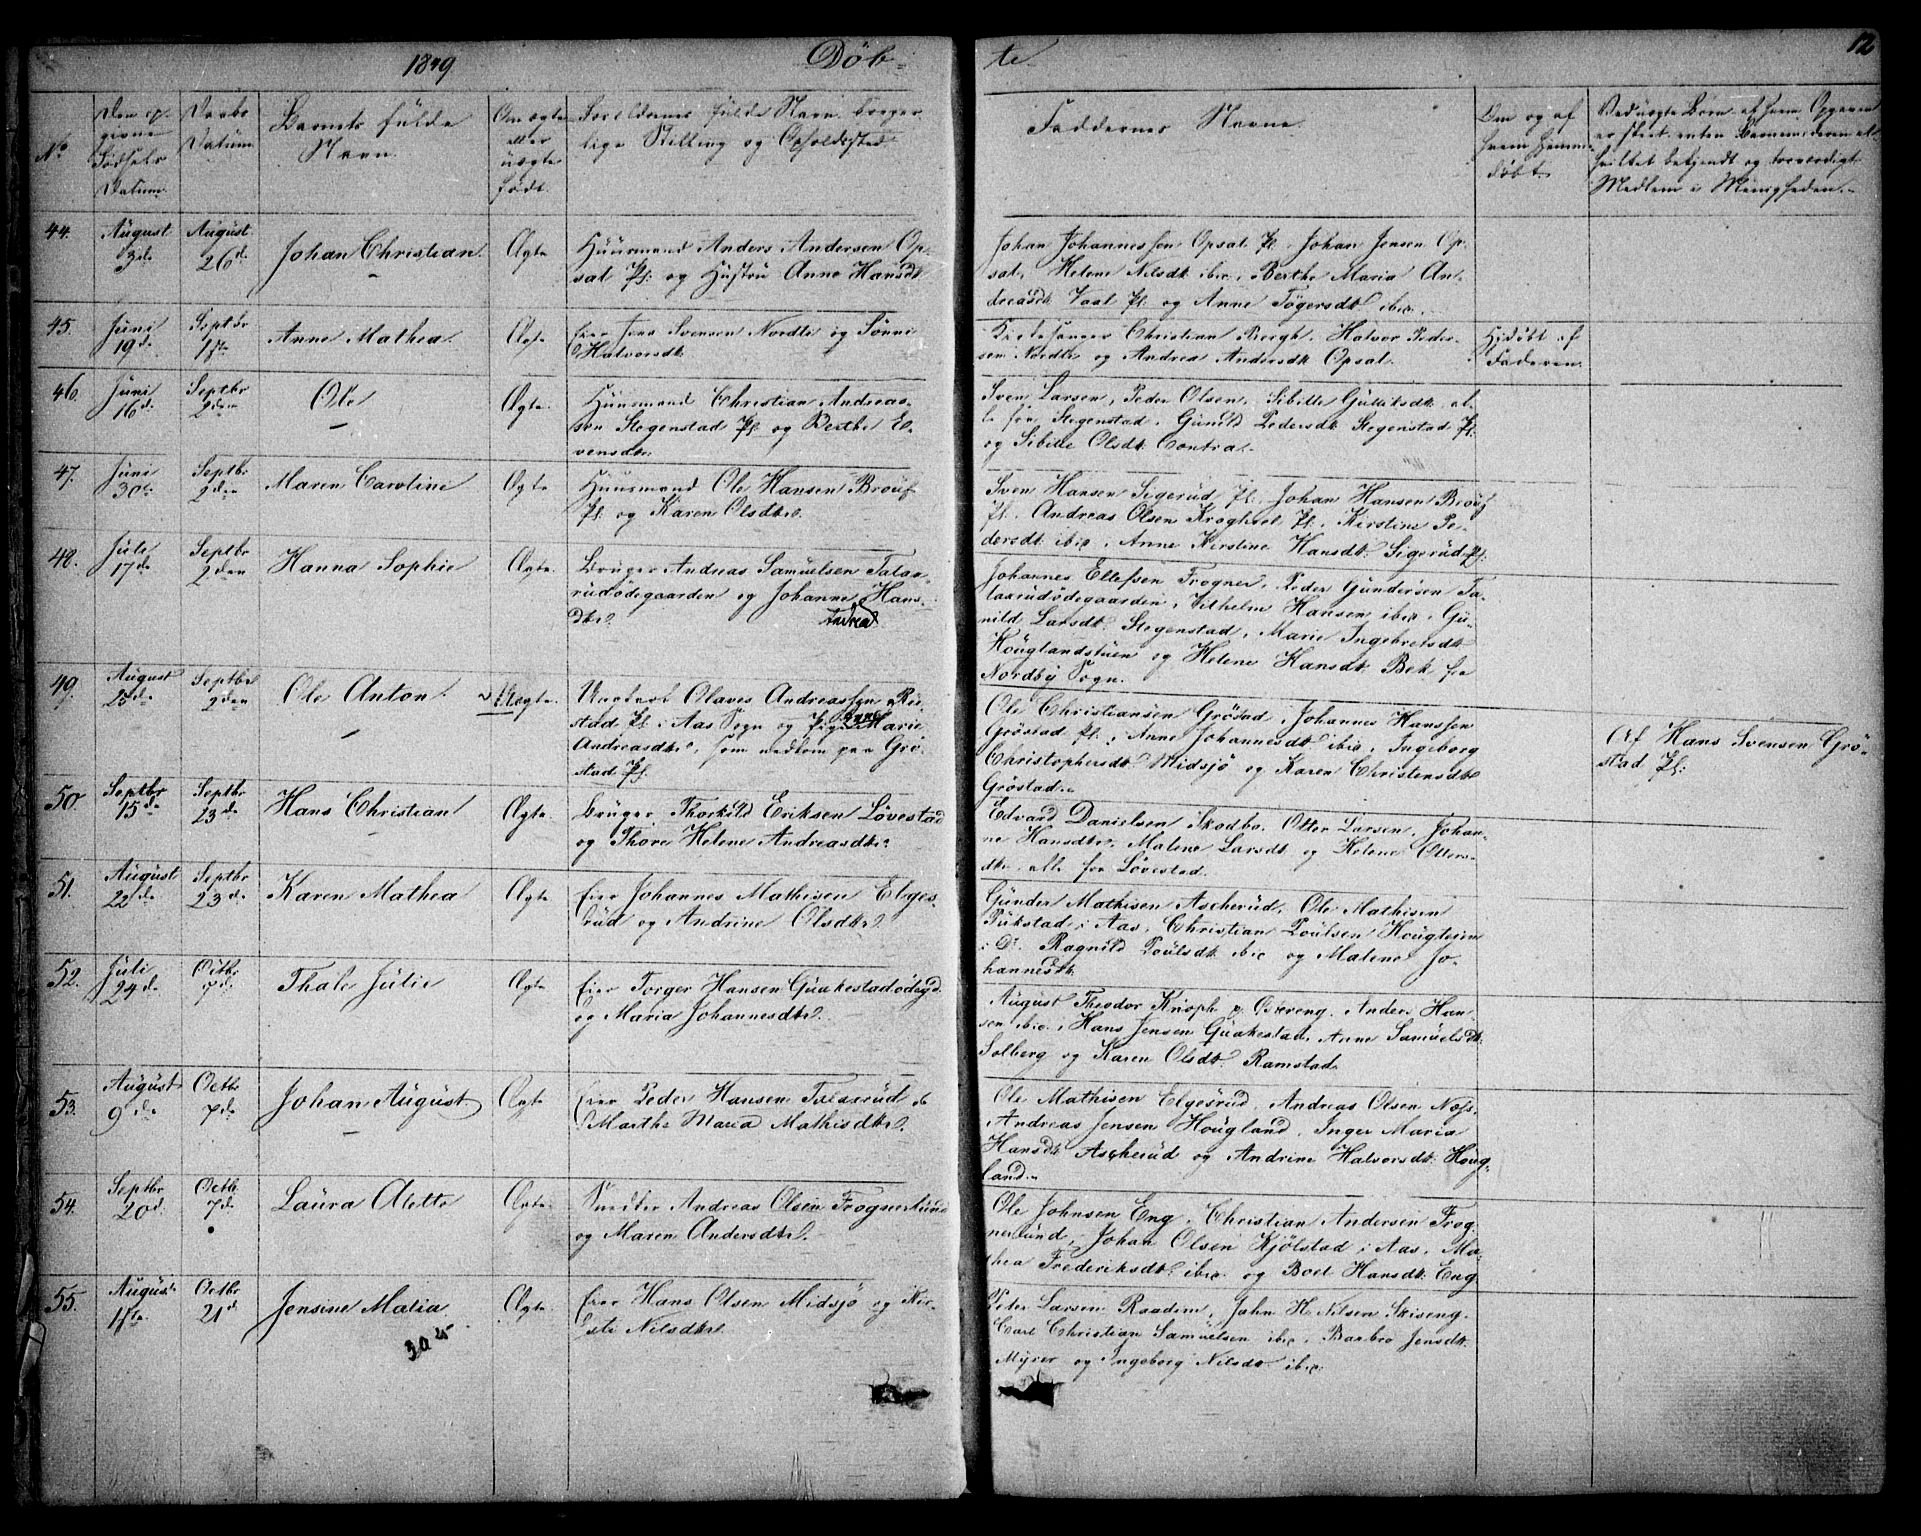 1849
Döb-
te
12
No
Den op-
givne
Födsels
Datum.
Daabs
Datum
Barnets fulde
Navn.
Om ægte
eller
uægte
født.
Forældrenes fulde Navn, borger-
lige Stilling og Opholdssted
Faddernes Navne.
Om og af
hvem hjemme-
døbt.
Ved uægte Børn af hvem Opgaven
er skeet, enten Barnemoderen el.
hvilket bekjendt og troværdigt
Medlem i Menigheden.-
44.
August
3die
August
26de
Johan Christian.
Ægte
Huusmand Anders Andersen Op-
sat Pl: og Hustru Anne Hansdt
Johan Johannessen Opsat Pl. Johan Jensen Op-
sat, Helene Nilsdt. ibid, Berthe Maria An-
dreasdt. Vaat Pl. og Anne Tögersdt. ibid.
45.
Juni
19de
Septbr
1ste
Anne Mathea.
Ægte
Eier Jens Svensen Nordli og Sönni
Halvorsdt.
Kirkesanger Christian Bergh. Halvor Peder-
sen Nordli og Andrea Andersdt. Opsat.
Hjdöbt af
Faderen.
46.
Juni
16de
Septbr
2den
Ole
Ægte.
Huusmand Christian Andreas-
sen Stegenstad Pl. og Berthe E-
vensdtr.
Sven Larsen, Peder Olsen, Sibille Gulliksdt. al-
le fra Stegenstad. Gunild Pedersdt. Stegenstad Pl.
og Sibille Olsdt. Contra.
47.
Juni
30te
Septbr
2den
Maren Caroline
Ægte
Huusmand Ole Hansen
Pl. og Karen Olsdtr.
Sven Hansen Sigerud Pl. Johan Hansen
Pl. Andreas Olsen Pl. Kirstine Pe-
dersdt. ibid, Anne Kirstine Hansdt. Sigerud Pl.
48.
Juli
17de
Septbr
2den
Hanna Sophie
Ægte.
Bruger Andreas Samuelsen Talas-
rudödegaarden og Johanne Hans-
dtr.
Andrea
Johannes Ellefsen Frogner, Peder Gundersen Ta-
lasrudödegaarden, Vilhelm Hansen ibid, Gu-
nild Larsdt. Stegenstad, Marie Ingebretsdt
Houglandstuen og Helene Hansdt. Bek fra
Nordby Sogn.
49.
August
25de
Septbr
2den
Ole Anton.
Uægte.
Ungkarl Olaves Andreassen Rii-
stad Pl. i Aas Sogn og Pige Anne Marie
Andreasdtr, som nedkom paa Grö-
stad Pl.
Ole Christiansen Gröstad, Johannes Hanssen
Gröstad Pl., Anne Johannesdt. ibid, Ingeborg
Christophersdt. Midsjö og Karen Christensdt.
Gröstad.
Af Hans Svensen Grö-
stad Pl:
50.
Septbr
15de
Septbr
23de
Hans Christian
Ægte.
Bruger Thorkild Eriksen Lövestad
og Thore Helene Andreasdtr.
Edvard Danielsen Skodbo. Otter Larsen, Johan-
ne Hansdtr, Malene Larsdt. og Helene Otters-
dtr. alle fra Lövestad.
51.
August
22de
Septbr
23de
Karen Mathea
Ægte
Eier Johannes Mathisen Elges-
rud og Andrine Olsdtr.
Gunder Mathisen Ascherud, Ole Mathisen
Pukstad i Aas, Christian Poulsen Hougteien
i Do. Ragnild Poulsdt. ibid og Malene Jo-
hannesdt.
52.
Juli
24de
Octbr
7de
Thale Julie
Ægte
Eier Torger Hansen Guakestadödegd.
og Maria Johannesdtr.
August Theodor Knoph p. Ousereng. Anders Han-
sen ibid, Hans Jensen Guakestad, Anne Samuelsdt.
Solberg og Karen Olsdt. Ramstad.
53.
August
9de
Octbr
7de
Johan August
Ægte
Eier Peder Hansen Talasrud &
Marthe Maria Mathisdtr.
Ole Mathisen Elgesrud, Andreas Olsen Næss.
Andreas Jensen Hougland, Inger Maria
Hansdt. Ascherud og Andrine Halvorsdt. Houg-
land.
54.
Septbr
20de
Octbr
7de
Laura Alette
Ægte.
Snedker Andreas Olsen Frognerlund
og Maren Andersdtr.
Ole Johnsen Eng, Christian Andersen Frog-
nerlund, Johan Olsen Kjölstad i Aas, Ma-
thea Frederiksdt. ibid. og Boel Hansdt. Eng
55.
August
1ste
Octbr
21de
Jensine Malia
Ægte.
Eier Hans Olsen Midsjö og Kir-
sti Nilsdtr.
30
Peter Larsen Raadim, John H. Nilsen Skiseng.
Carl Christian Samuelsen ibid, Barbro Jensdt.
Myrer og Ingeborg Nilsdt ibid.